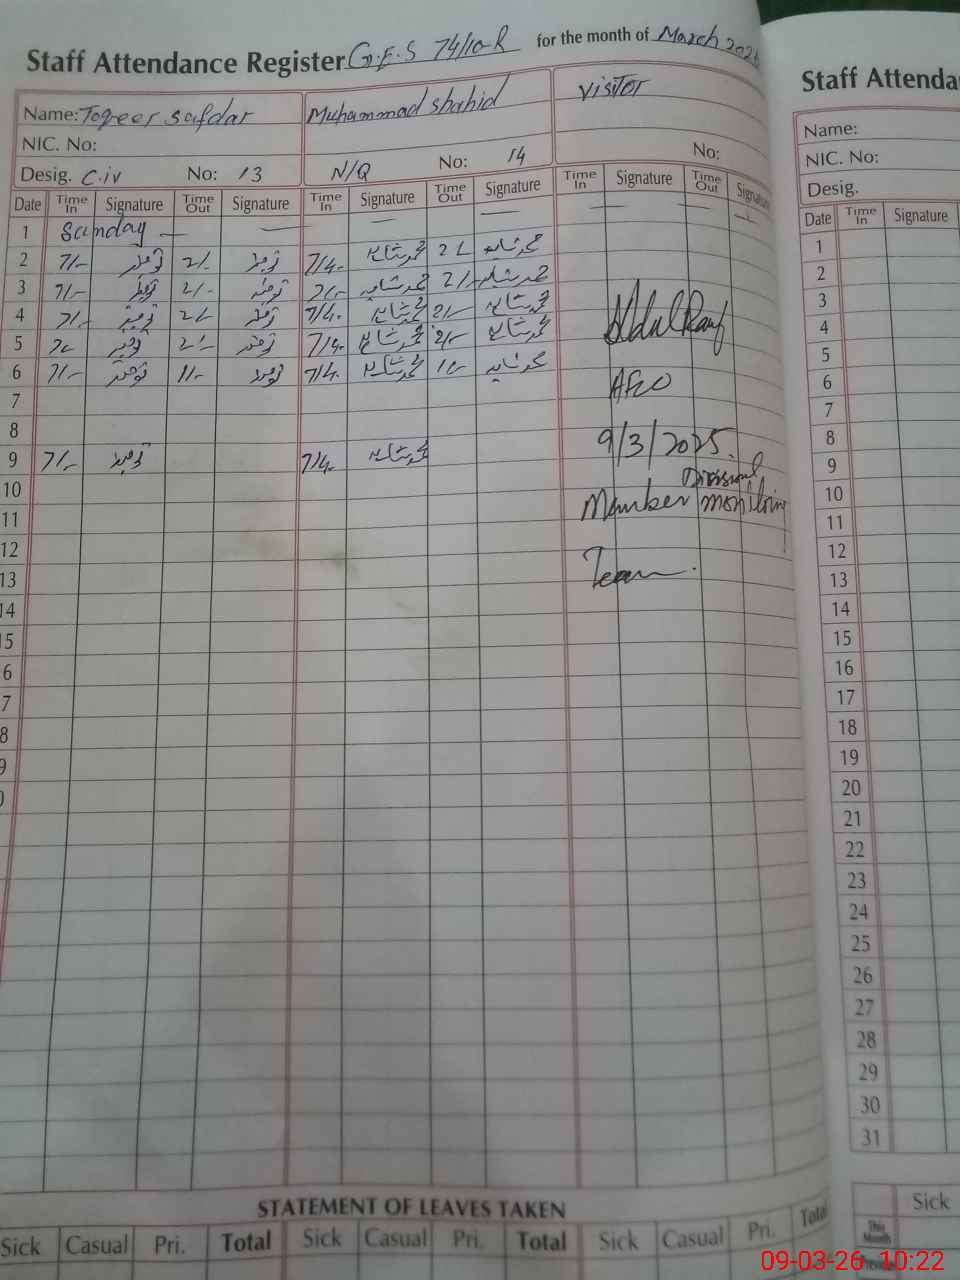 Staff Attendance Register G.E.S 74/10-R for the month of March 2026
Name: Toqeer safdar Muhammad shahid visiTor
NIC. No:
Desig. C.iv No: 13 N/Q No: 14 No:
Date Time In Signature Time Out Signature Time In Signature Time Out Signature Time In Signature Time Out Signature
1 Sunday — — — — — —
2 7/- توقیر 2/- توقیر 7/4. محمد شاہد 2/- محمد شاہد
3 7/- توقیر 2/- توقیر 7/- محمد شاہد 2/- محمد شاہد
4 7/- توقیر 2/- توقیر 7/4. محمد شاہد 2/- محمد شاہد
5 7/- توقیر 2/- توقیر 7/4. محمد شاہد 2/- محمد شاہد
6 7/- توقیر 1/- توقیر 7/4. محمد شاہد 1/- محمد شاہد
7
8
9 7/- توقیر 7/4. محمد شاہد
10
11
12
13
14
15
6
7
8
9
0
Abdul Rauf
AEO
9/3/2025.
Divisional
Member monitoring
Team.
STATEMENT OF LEAVES TAKEN
Sick Casual Pri. Total Sick Casual Pri. Total Sick Casual Pri. Total
Staff Attenda
Name:
NIC. No:
Desig.
Date Time In Signature
1
2
3
4
5
6
7
8
9
10
11
12
13
14
15
16
17
18
19
20
21
22
23
24
25
26
27
28
29
30
31
Sick
This Month
09-03-26 10:22